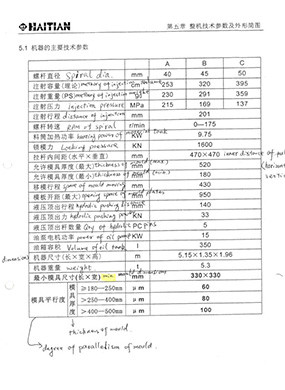 HAITIAN
第五章 整机技术参数及外形简图
5.1 机器的主要技术参数
A B C
螺杆直径 spiral dia. mm 40 45 50
注射容量(理论) theory of injection volume cm³ 253 320 395
注射重量(PS) theory of injection weight g 230 291 359
注射压力 injection pressure MPa 215 169 137
注射行程 distance of injection mm 201
螺杆转速 RPM of spiral r/min 0—175
料筒加热功率 heating power of tank KW 9.75
锁模力 Locking pressure KN 1600
拉杆内间距(水平×垂直) mm 470×470 inner distance of
允许模具厚度(最大) thickness of mould (max) mm 520
允许模具厚度(最小) thickness of mold (min) mm 180
移模行程 mm 430
模板开距(最大) mm 950
液压顶出行程 hydraulic pushing distance mm 140
液压顶出力 hydraulic pushing KN 33
液压顶出杆数量 Qty of hydraulic PC 5
油泵电机功率 power of oil pump KW 15
油箱容积 Volume of oil tank l 350
机器尺寸(长×宽×高) m 5.15×1.35×1.96
机器重量 weight t 5.3
最小模具尺寸(长×宽) min mould dimensions mm 330×330
模具平行度 模具厚度 ≥180—250mm μm 60
>250—400mm μm 80
>400—500mm μm 100
thickness of mould.
degree of parallelism of mould.